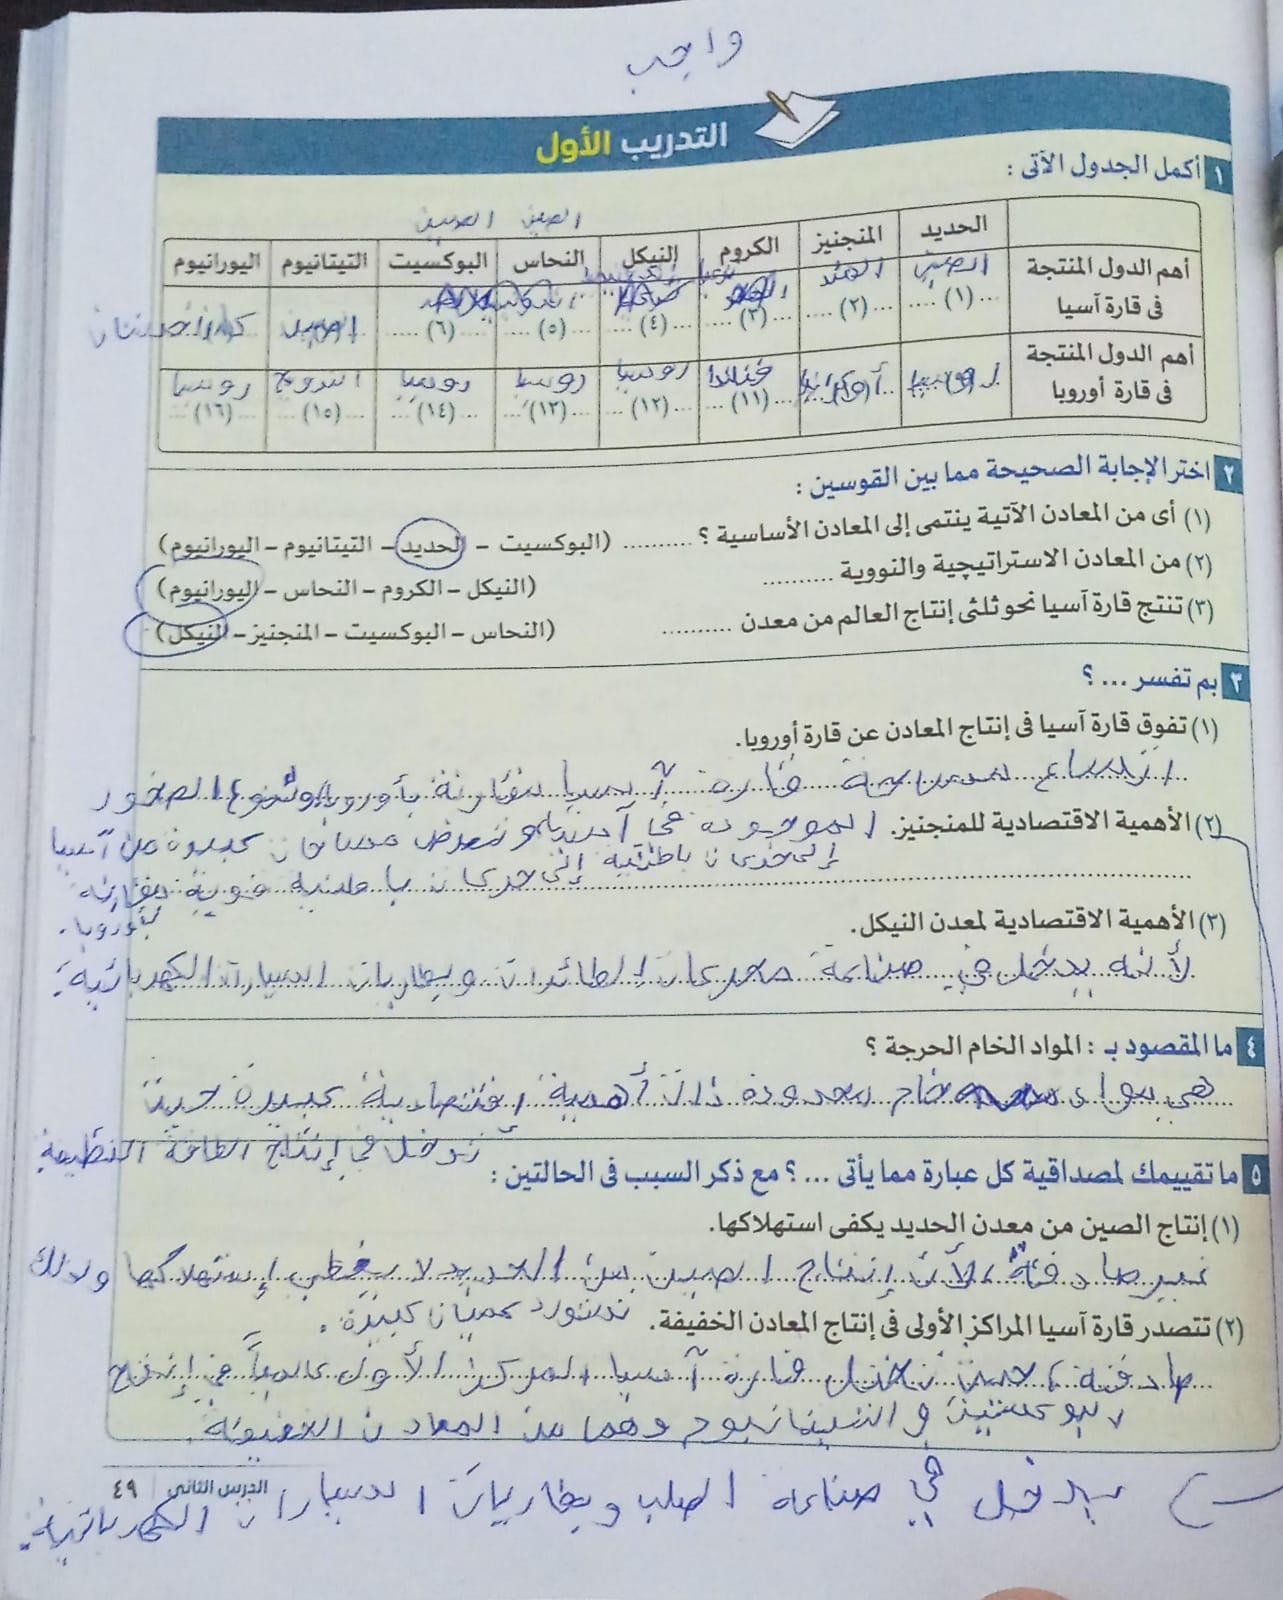 واجب
التدريب الأول
١ أكمل الجدول الآتى :
الصين الصين
الحديد المنجنيز الكروم النيكل النحاس البوكسيت التيتانيوم اليورانيوم
أهم الدول المنتجة فى قارة آسيا
الصين الهند تركيا الصين كازاخستان
(١) (٢) (٣) (٤) (٥) (٦)
أهم الدول المنتجة فى قارة أوروبا
روسيا أوكرانيا فنلندا روسيا روسيا روسيا النرويج روسيا
(١١) (١٢) (١٣) (١٤) (١٥) (١٦)
٢ اختر الإجابة الصحيحة مما بين القوسين :
(١) أى من المعادن الآتية ينتمى إلى المعادن الأساسية ؟ .......... (البوكسيت - الحديد - التيتانيوم - اليورانيوم)
(٢) من المعادن الاستراتيجية والنووية .......... (النيكل - الكروم - النحاس - اليورانيوم)
(٣) تنتج قارة آسيا نحو ثلثى إنتاج العالم من معدن .......... (النحاس - البوكسيت - المنجنيز - النيكل)
٣ بم تفسر ... ؟
(١) تفوق قارة آسيا فى إنتاج المعادن عن قارة أوروبا.
اتساع مساحة قارة آسيا مقارنة بأوروبا وتنوع الصخور
الموجودة في آسيا وتعرض مساحات كبيرة من آسيا
(٢) الأهمية الاقتصادية للمنجنيز.
إلى حركات باطنية
إلى حركات باطنية قوية مقارنة
بأوروبا.
(٣) الأهمية الاقتصادية لمعدن النيكل.
لأنه يدخل في صناعة محركات الطائرات وبطاريات السيارات الكهربائية.
٤ ما المقصود بـ : المواد الخام الحرجة ؟
هي مواد خام محدودة ذات أهمية إقتصادية كبيرة حيث
تدخل في إنتاج الطاقة النظيفة
٥ ما تقييمك لمصداقية كل عبارة مما يأتى ... ؟ مع ذكر السبب فى الحالتين :
(١) إنتاج الصين من معدن الحديد يكفى استهلاكها.
غير صادقة، لأن إنتاج الصين من الحديد لا يغطي إستهلاكها ولذلك
تستورد كميات كبيرة.
(٢) تتصدر قارة آسيا المراكز الأولى فى إنتاج المعادن الخفيفة.
صادقة، حيث تحتل قارة آسيا المركز الأول عالمياً في إنتاج
البوكسيت و التيتانيوم وهما من المعادن الخفيفة.
الدرس الثانى ٤٩
يدخل في صناعة الصلب وبطاريات السيارات الكهربائية.